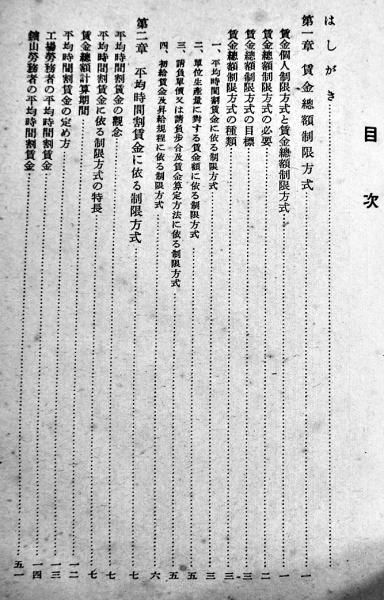 目次
はしがき……一
第一章 賃金總額制限方式……一
賃金個人制限方式と賃金總額制限方式……一
賃金總額制限方式の必要……二
賃金總額制限方式の目標……三
賃金總額制限方式の種類……三
一、平均時間割賃金に依る制限方式……三
二、單位生產量に對する賃金額に依る制限方式……五
三、請負單價又は請負步合及賃金算定方法に依る制限方式……五
四、初給賃金及昇給規程に依る制限方式……六
第二章 平均時間割賃金に依る制限方式……七
平均時間割賃金の觀念……七
平均時間割賃金に依る制限方式の特長……七
賃金總額計算期間……七
平均時間割賃金の定め方……一二
工場勞務者の平均時間割賃金……一三
鑛山勞務者の平均時間割賃金……一四
五一